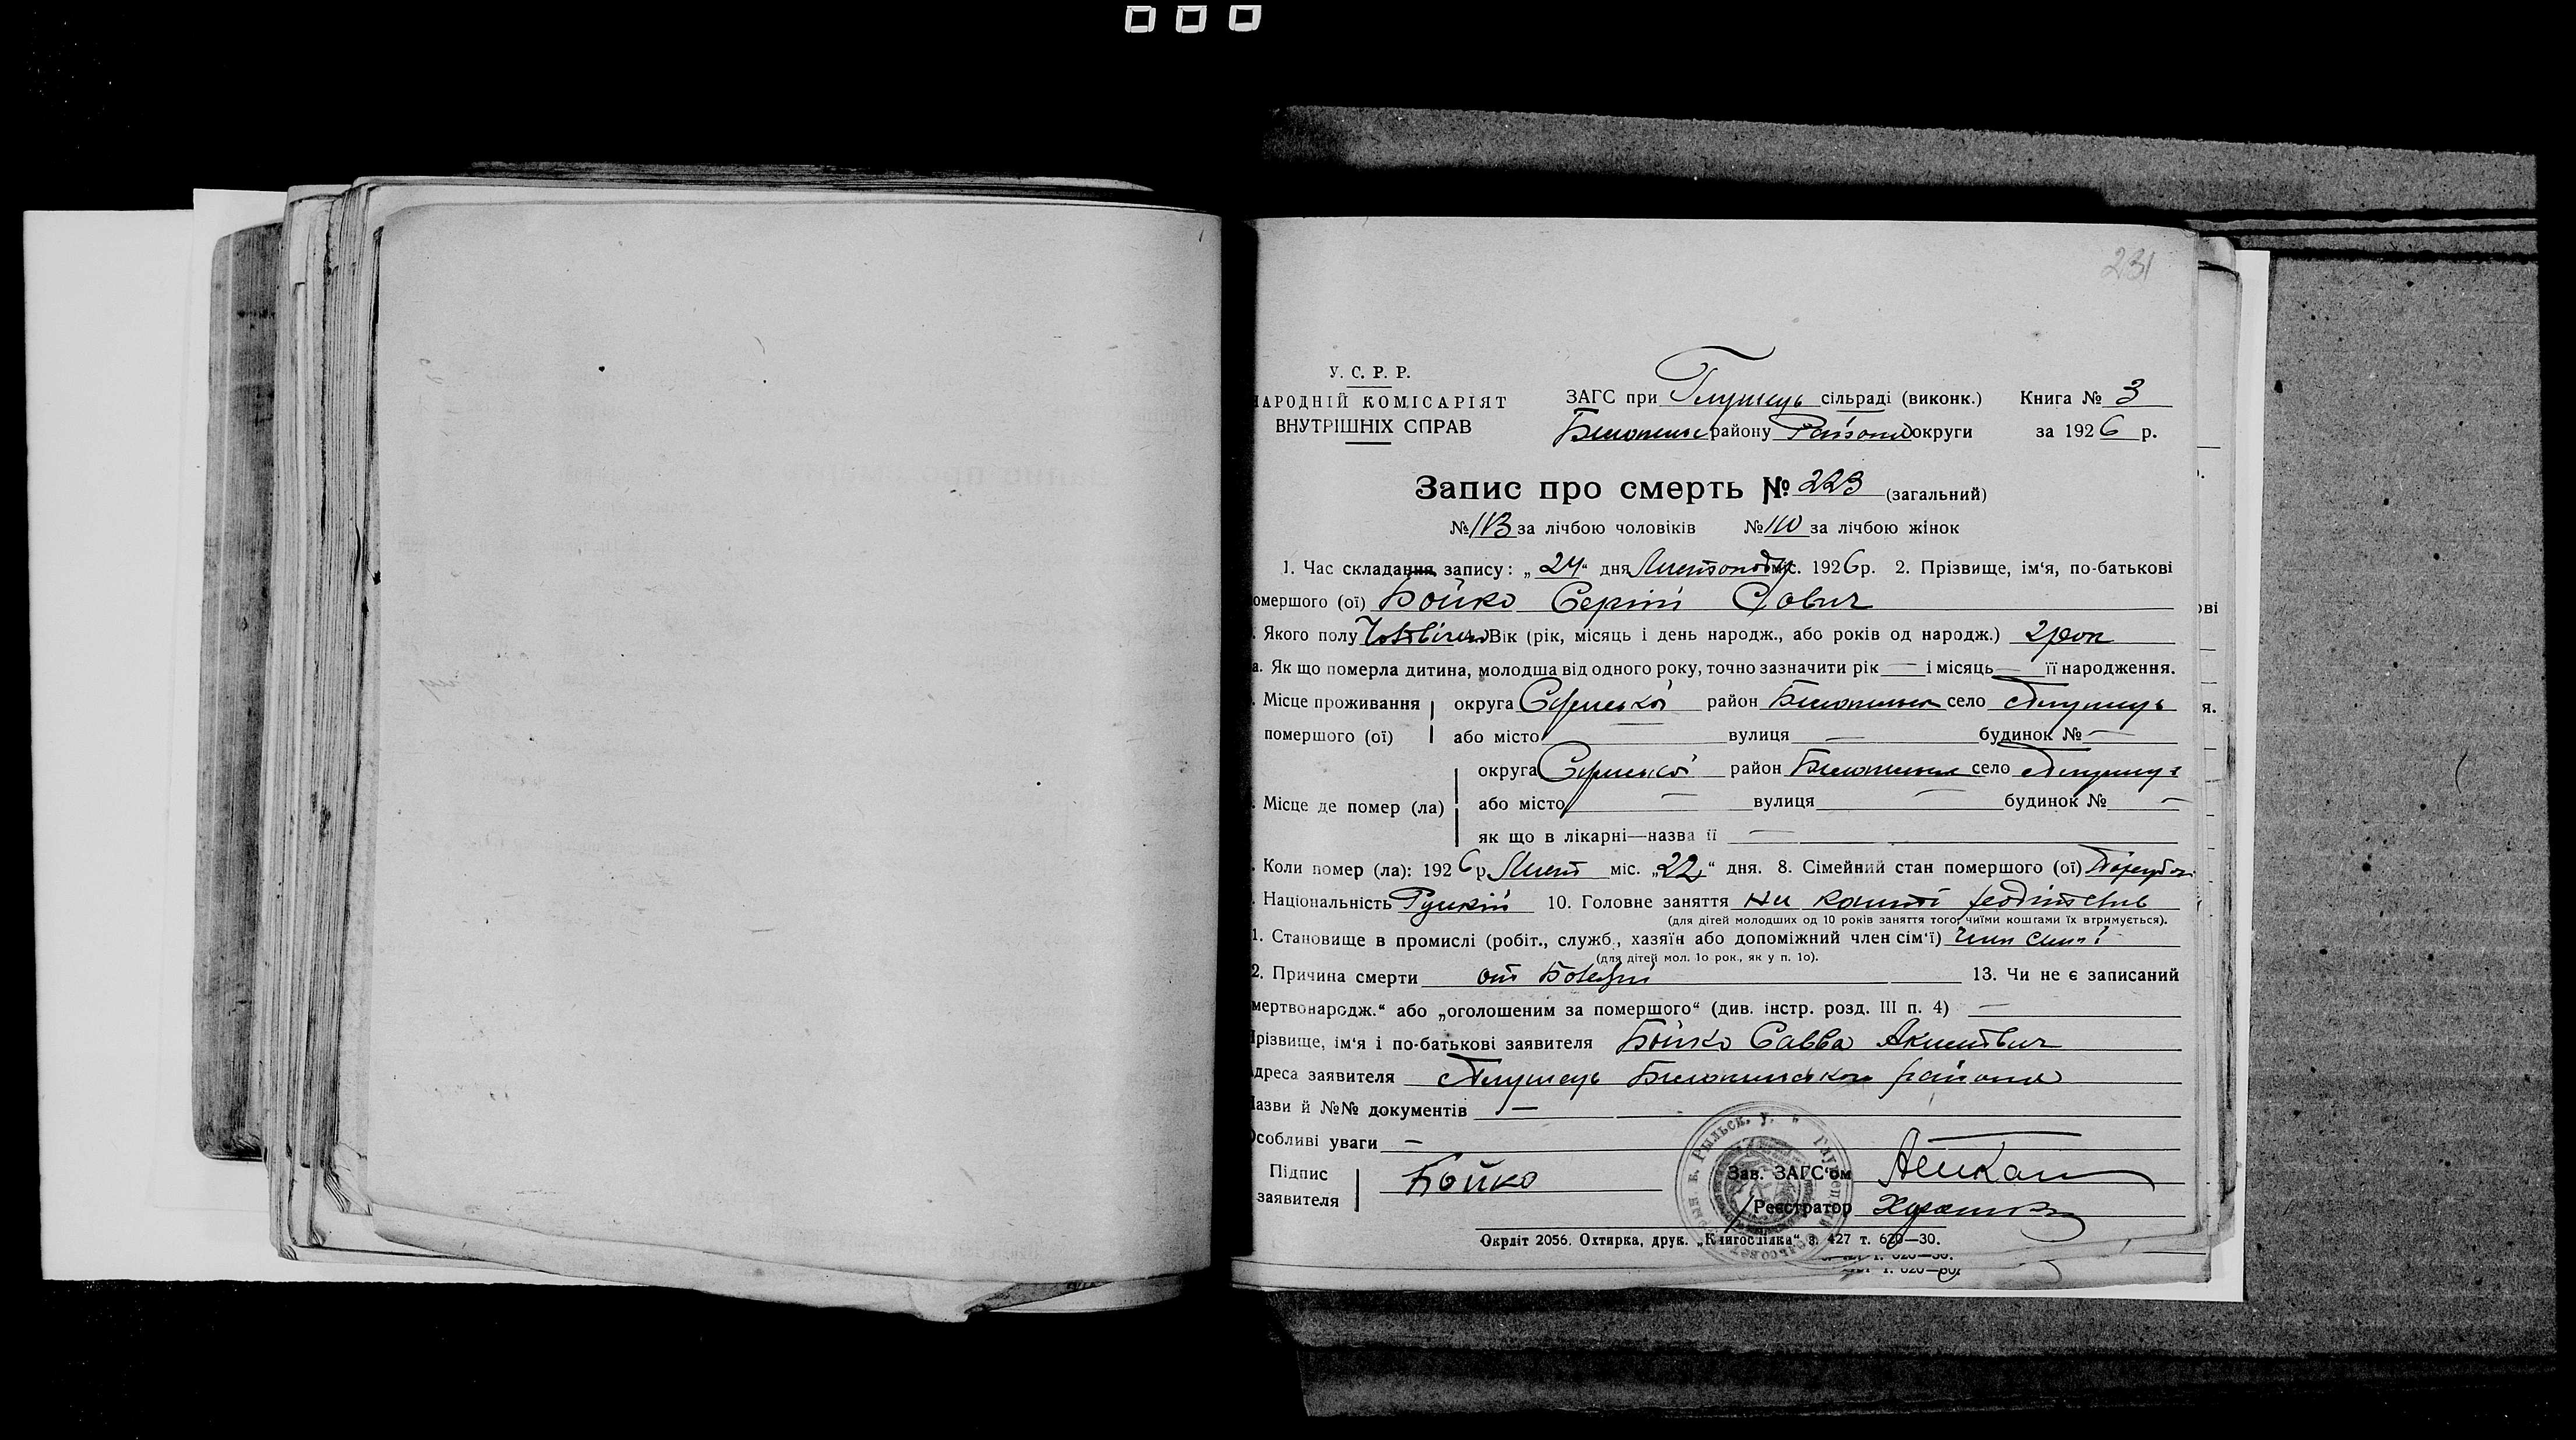 231
У. С. Р. Р.
НАРОДНІЙ КОМІСАРІЯТ
ВНУТРІШНІХ СПРАВ
ЗАГС при Глушець сільраді (виконк.) Книга № 3
району округи за 1926 р.
Запис про смерть № 223 (загальний)
№ 113 за лічбою чоловіків № 110 за лічбою жінок
1. Час складання запису: „24“ дня Листопада міс. 1926 р. 2. Прізвище, ім‘я, по-батькові
омершого (ої) Бойко Сергій Савич
. Якого полу Вік (рік, місяць і день народж., або років од народж.) 2 рок
а. Як що померла дитина, молодша від одного року, точно зазначити рік — і місяць — її народження.
. Місце проживання округа Сумської район село Глушець
помершого (ої) або місто вулиця — будинок № —
округа Сумської район село Глушець
. Місце де помер (ла) або місто — вулиця — будинок № —
як що в лікарні—назва її —
. Коли помер (ла): 1926 р. Лист міс. „22“ дня. 8. Сімейний стан помершого (ої)
. Національність Руский 10. Головне заняття на кошті
(для дітей молодших од 10 років заняття того, чиїми коштами їх втримується).
1. Становище в промислі (робіт., служб., хазяїн або допоміжний член сім‘ї) член сім‘ї
(для дітей мол. 10 рок., як у п. 10).
2. Причина смерти от Болезні 13. Чи не є записаний
мертвонародж.“ або „оголошеним за помершого“ (див. інстр. розд. III п. 4) —
Прізвище, ім‘я і по-батькові заявителя Бойко Савва
Адреса заявителя Глушець района
Назви й №№ документів —
Особливі уваги —
Підпис
заявителя Бойко
Зав. ЗАГС‘ом
Реєстратор
Окрліт 2056. Охтирка, друк. „Книгоспілка“ з. 427 т. 620—30.